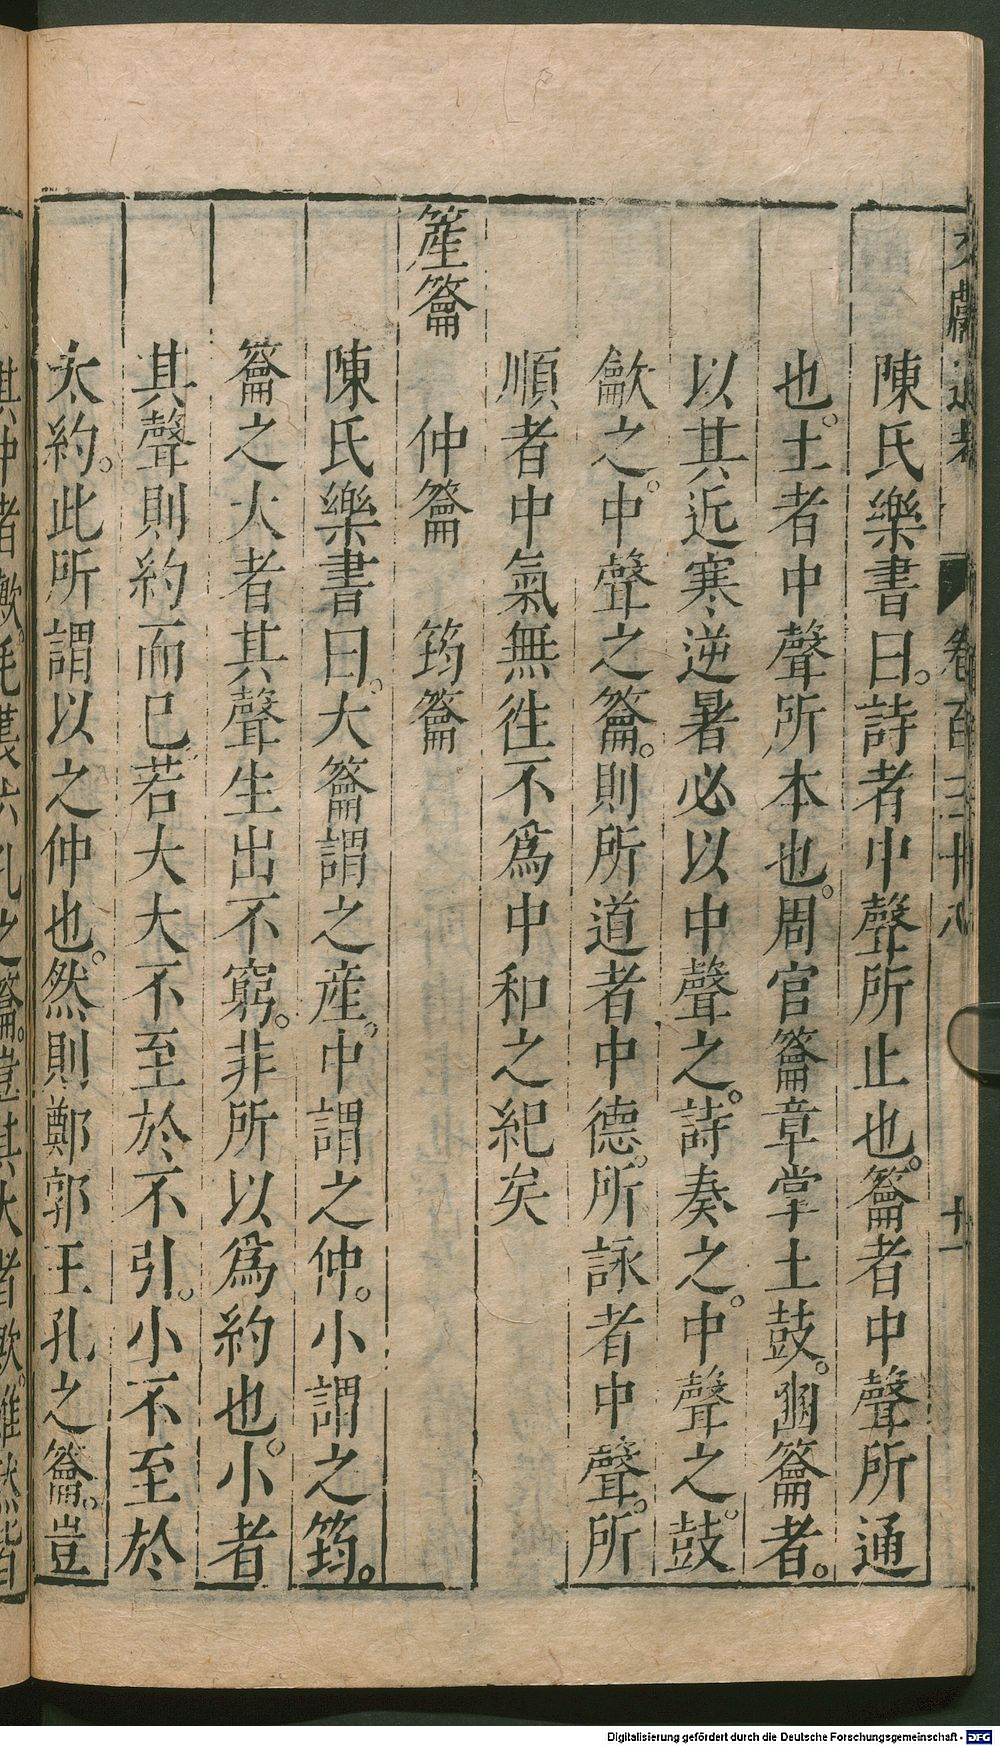 文獻通考 卷百三十八 十一
陳氏樂書曰。詩者中聲所止也。籥者中聲所通
也。土者中聲所本也。周官籥章掌土鼓。豳籥者。
以其近寒、逆暑必以中聲之。詩奏之。中聲之。鼓
龡之。中聲之籥。則所道者中德。所詠者中聲。所
順者中氣無徃不爲中和之紀矣
篞籥 仲籥 筠籥
陳氏樂書曰。大籥謂之産。中謂之仲。小謂之筠。
籥之大者其聲生出不窮。非所以爲約也。小者
其聲則約而已若大大不至於不引。小不至於
太約。此所謂以之仲也。然則鄭郭王孔之籥。豈
Digitalisierung gefördert durch die Deutsche Forschungsgemeinschaft - DFG